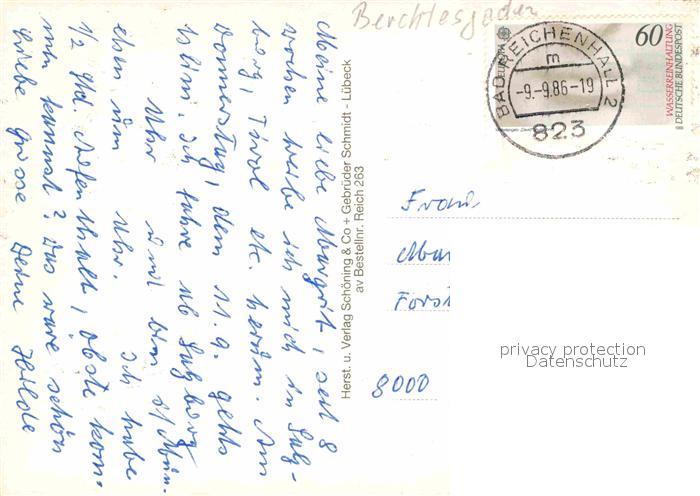 Berchtesgaden
EUROPA
60
WASSERREINHALTUNG
DEUTSCHE BUNDESPOST
BAD REICHENHALL 2
m
-9.-9.86-19
823
Meine liebe Margrit, seit 8
Wochen treibe ich mich in Salz-
burg, Tirol etc. herum. Am
Donnerstag, dem 11.9. gehts
heim. Ich fahre ab Salzburg
Uhr und bin i/Mün-
chen um Uhr. Ich habe
1/2 Std. Aufenthalt, obste kom-
men kannst? Das wäre schön
Liebe Grüsse Deine Hilde
Herst. u. Verlag Schöning & Co + Gebrüder Schmidt - Lübeck
av Bestellnr. Reich 263
Frau
Mar
Forst
8000
privacy protection
Datenschutz